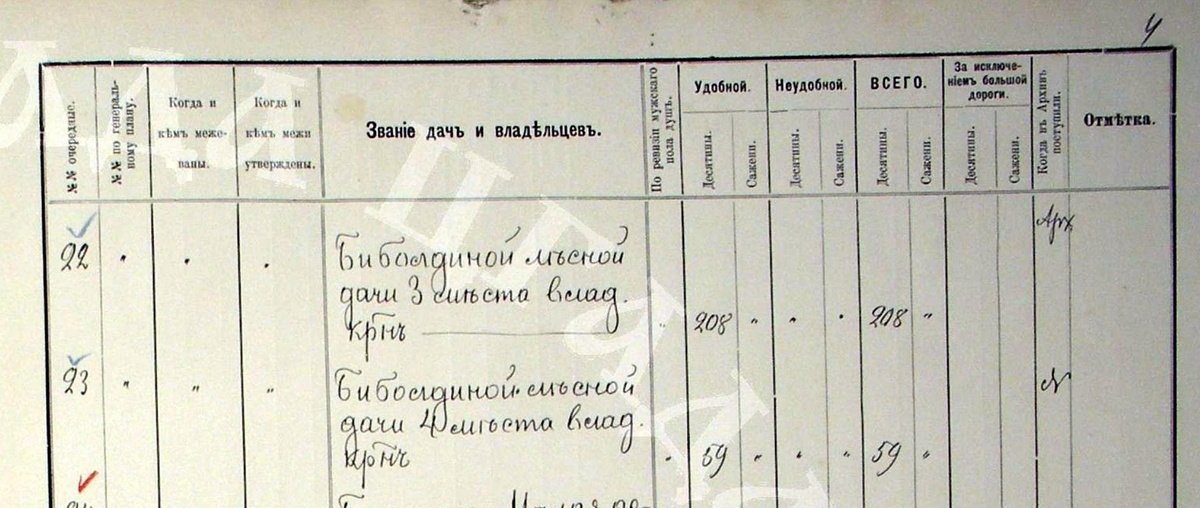 4
№№ очередные.
№№ по генераль-
ному плану.
Когда и
кѣмъ меже-
ваны.
Когда и
кѣмъ межи
утверждены.
Званіе дачъ и владѣльцевъ.
По ревизіи мужскаго
пола душъ.
Удобной.
Десятины.
Сажени.
Неудобной.
Десятины.
Сажени.
ВСЕГО.
Десятины.
Сажени.
За исключе-
ніемъ большой
дороги.
Десятины.
Сажени.
Когда въ Архивъ
поступили.
Отмѣтка.
22 " " " Биболдиной лѣсной Арх
дачи 3 мѣста влад.
крнъ " 208 " " " 208 "
23 " " " Биболдиной лѣсной
дачи 4 мѣста влад.
крнъ " 59 " " " 59 "